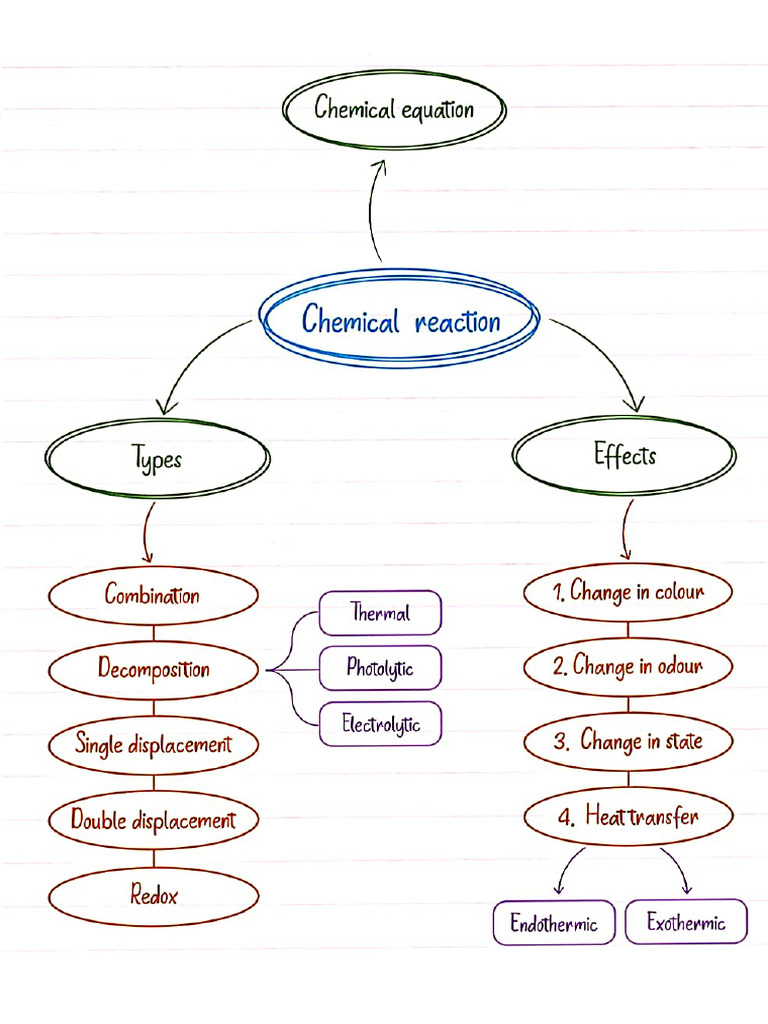 Chemical equation
Chemical reaction
Types
Combination
Decomposition
Thermal
Photolytic
Electrolytic
Single displacement
Double displacement
Redox
Effects
1. Change in colour
2. Change in odour
3. Change in state
4. Heat transfer
Endothermic
Exothermic